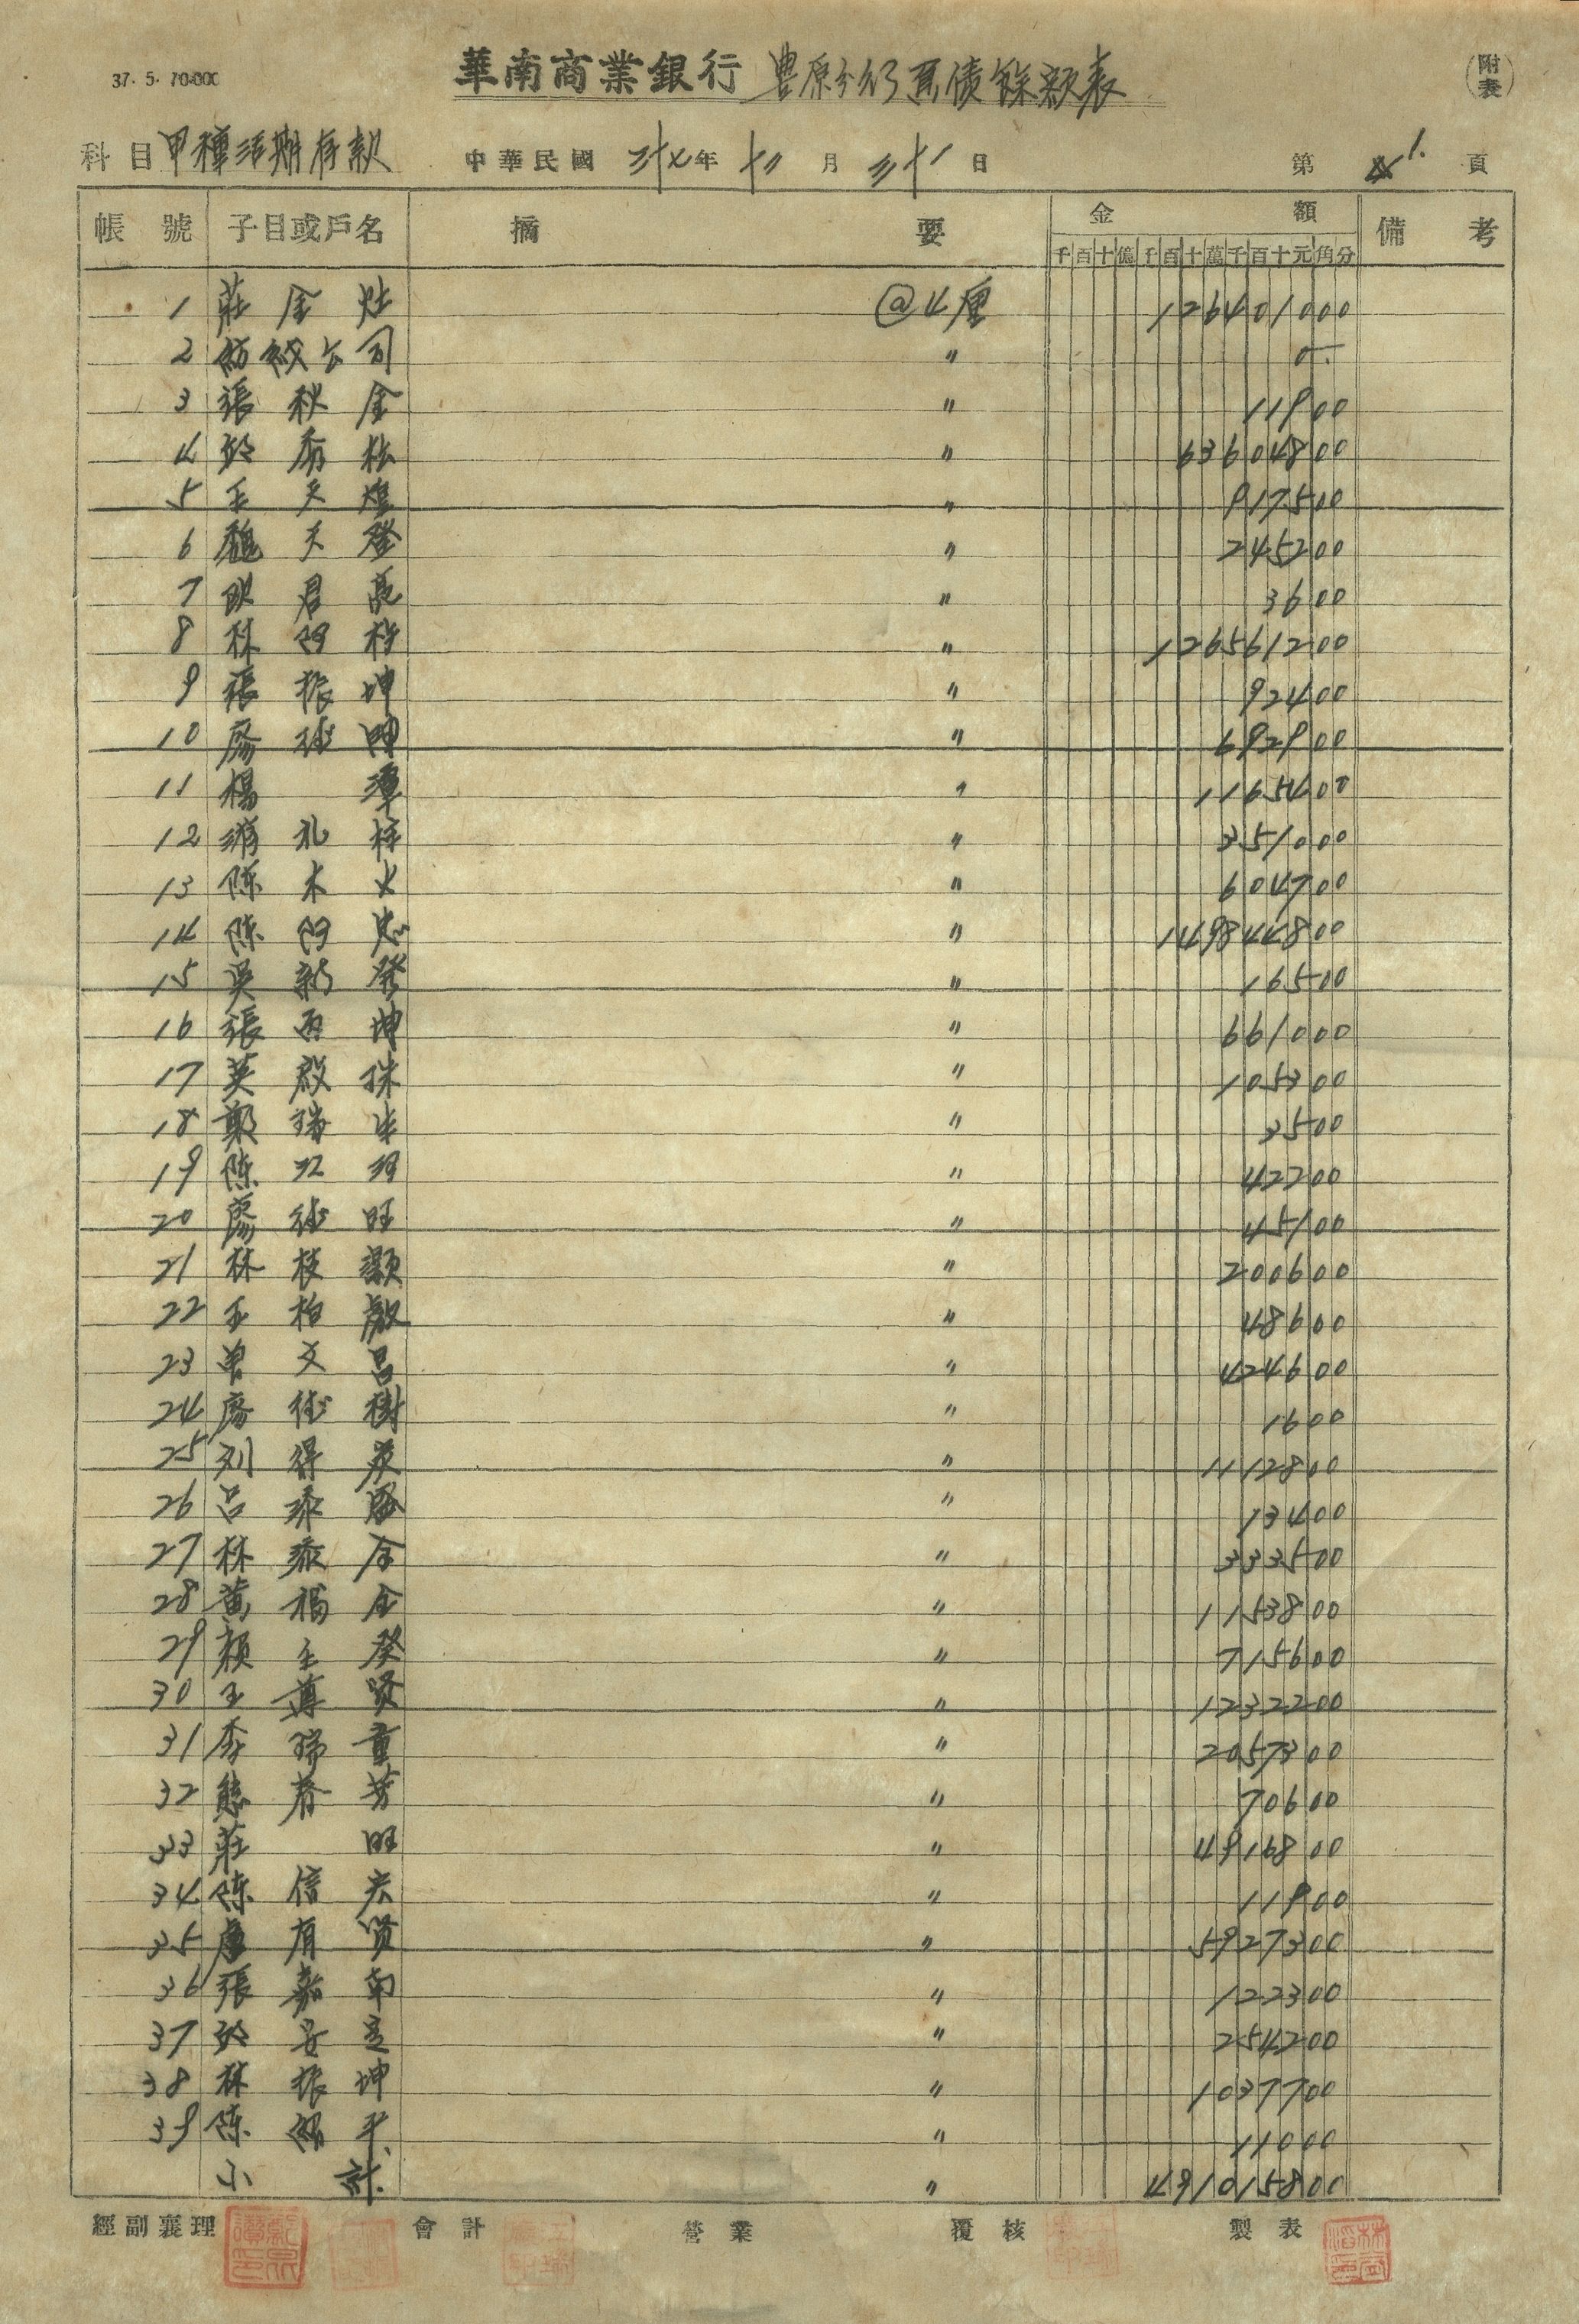 37. 5. 70.000
華南商業銀行 豊原分行 負債餘額表
(附表)
科目 甲種活期存款 中華民國 三十七年 十二月 三十一日 第 1. 頁
帳號 子目或戶名 摘要 金額 備考
千百十億千百十萬千百十元角分
1 莊金灶 @4厘 126401000
2 紡織公司 〃
3 張秋金 〃 11900
4 秀松 〃 63604800
5 王天煌 〃 917500
6 魏天登 〃 245200
7 歐君亮 〃 3600
8 林阿 〃 126561200
9 張振坤 〃 92400
10 廖德坤 〃 692900
11 楊潭 〃 1165400
12 游礼梓 〃 351000
13 陳木火 〃 604700
14 陳阿忠 〃 149844800
15 吳新發 〃 16500
16 張西坤 〃 661000
17 英啟珠 〃 105300
18 鄭瑞生 〃 3500
19 陳江河 〃 42200
20 廖德旺 〃 45100
21 林枝灝 〃 200600
22 王柏啟 〃 48600
23 曾文昌 〃 424600
24 廖德樹 〃 1600
25 刘得炭 〃 1112800
26 呂添盛 〃 13400
27 林添全 〃 333500
28 黃楊金 〃 1153800
29 顏玉癸 〃 715600
30 王尊贤 〃 1232200
31 李瑞重 〃 2057300
32 熊春芳 〃 70600
33 莊旺 〃 4916800
34 陳信宏 〃 11900
35 盧有贤 〃 5927300
36 張嘉南 〃 122300
37 安定 〃 254200
38 林振坤 〃 1037700
39 陳紹平 〃 11000
小計 〃 491015800
經副襄理 會計 營業 覆核 製表